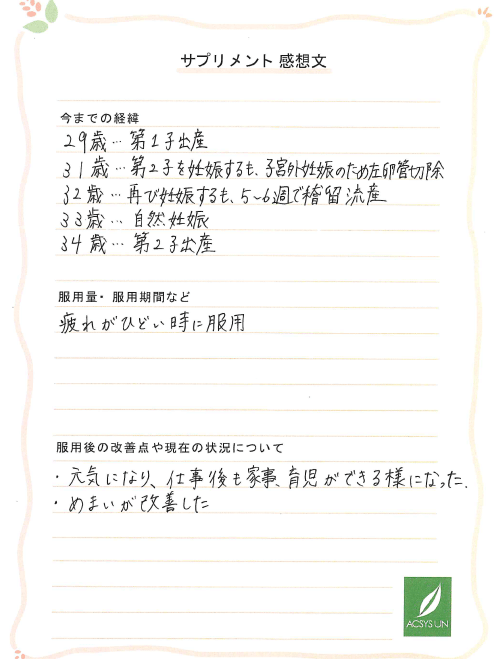 サプリメント 感想文
今までの経緯
29歳… 第1子出産
31歳… 第2子を妊娠するも、子宮外妊娠のため左卵管切除
32歳… 再び妊娠するも、5~6週で稽留流産
33歳… 自然妊娠
34歳… 第2子出産
服用量・服用期間など
疲れがひどい時に服用
服用後の改善点や現在の状況について
・元気になり、仕事後も家事、育児ができる様になった.
・めまいが改善した
ACSYS IJN